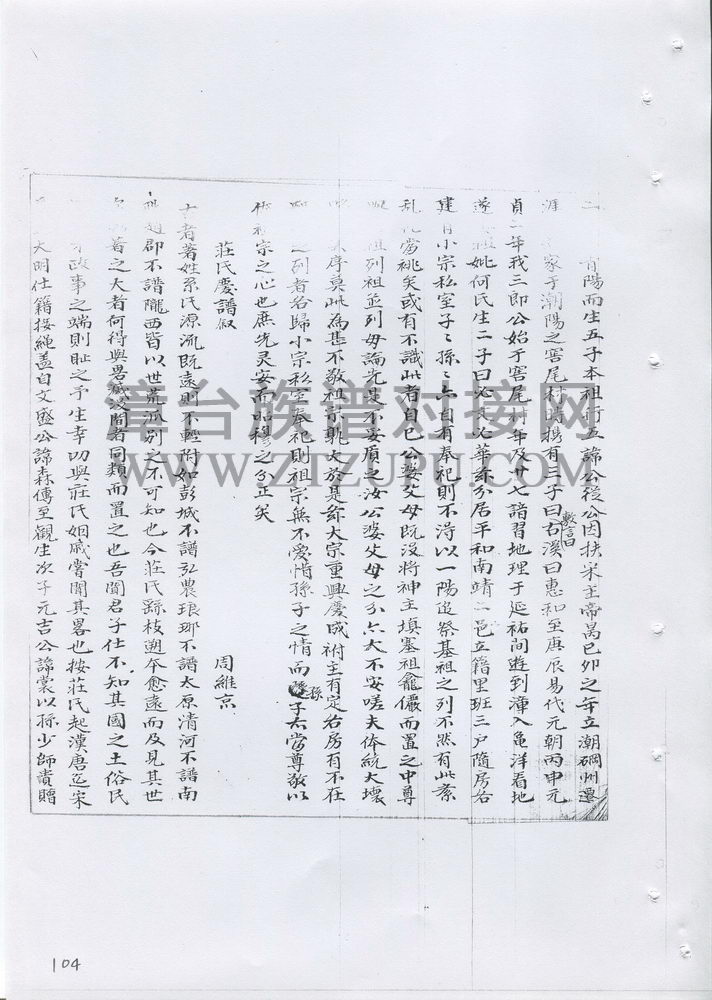 青陽而生五子本祖行五諱公從公因扶宋主帝昺己卯之年立潮碙州遷
家于潮陽之窖尾村時携有三子曰右溪曰惠和至庚辰易代元朝丙申元
數言曰
貞二年我三郎公始于窖尾村年及廿七諳習地理于延祐間遊到漳入龜洋看地
祖妣何氏生二子曰必文必華孫分居平和南靖二邑立籍里班三戶隨房各
建有小宗私室子子孫孫亦自有奉祀則不得以一陽追祭基祖之列不然有此紊
乱當祧矣或有不識此者自已公婆父母既沒將神主填塞祖龕儼而置之中尊
祖列祖並列毋論先灵不妥須之汝公婆父母之分亦大不安嗟夫体統大壞
序莫此為甚不敬祖莫大於是茲大宗重興慶成祔主有定各房有不在
之列者各歸小宗私室奉祀則祖宗無不愛惜孫子之情而孫子亦當尊敬以
祖宗之心也庶先灵安而昭穆之分正矣
莊氏慶譜叙
周維京
者著姓系氏源流既遠則不輕附如彭城不譜弘農琅琊不譜太原清河不譜南
趙郡不譜隴西皆以世荒派別之不可知也今莊氏縣枝遡本愈遠而及見其世
著之大者何得與君臧汶閭者同類而置之也吾聞君子仕不知其國之土俗民
政事之端則耻之予生幸叨與莊氏姻戚嘗聞其畧也按莊氏起漢唐迄宋
大明仕籍接繩蓋自文盛公諱森傳至觀生次子元吉公諱裳以孫少師貴贈
漳台族谱对接网
WWW.ZTZUPU.COM
104